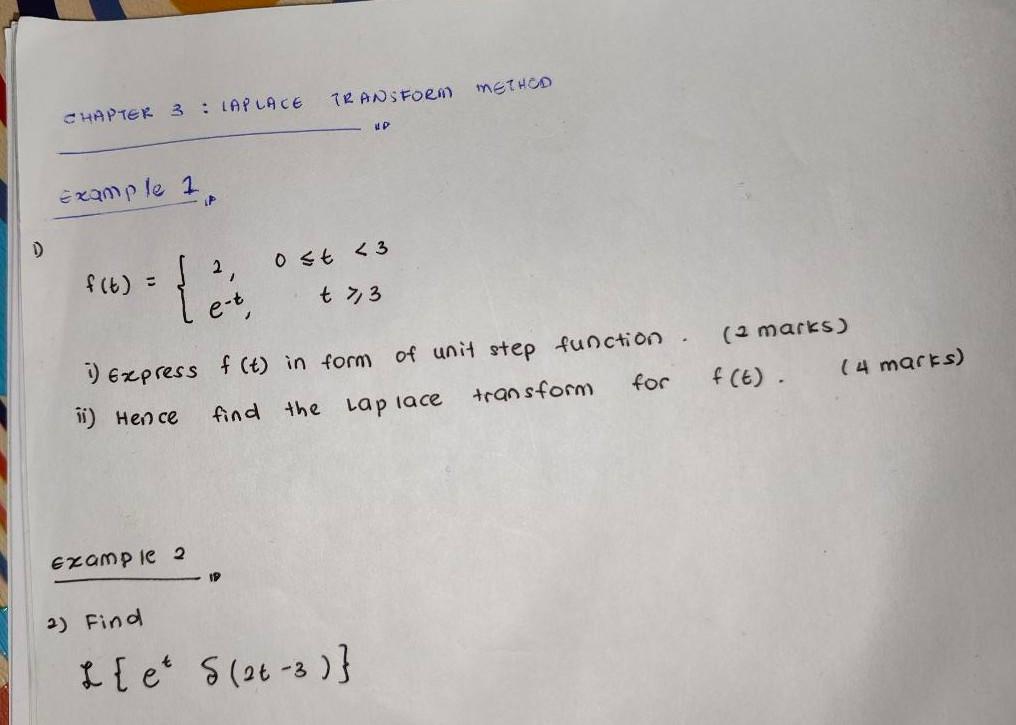 CHAPTER 3 : LAPLACE TRANSFORM METHOD
Example 1
1)
f(t) = { 2, 0 ≤ t < 3
e^-t, t ≥ 3
i) Express f(t) in form of unit step function. (2 marks)
ii) Hence find the Laplace transform for f(t). (4 marks)
Example 2
2) Find
ℒ{e^t δ(2t-3)}